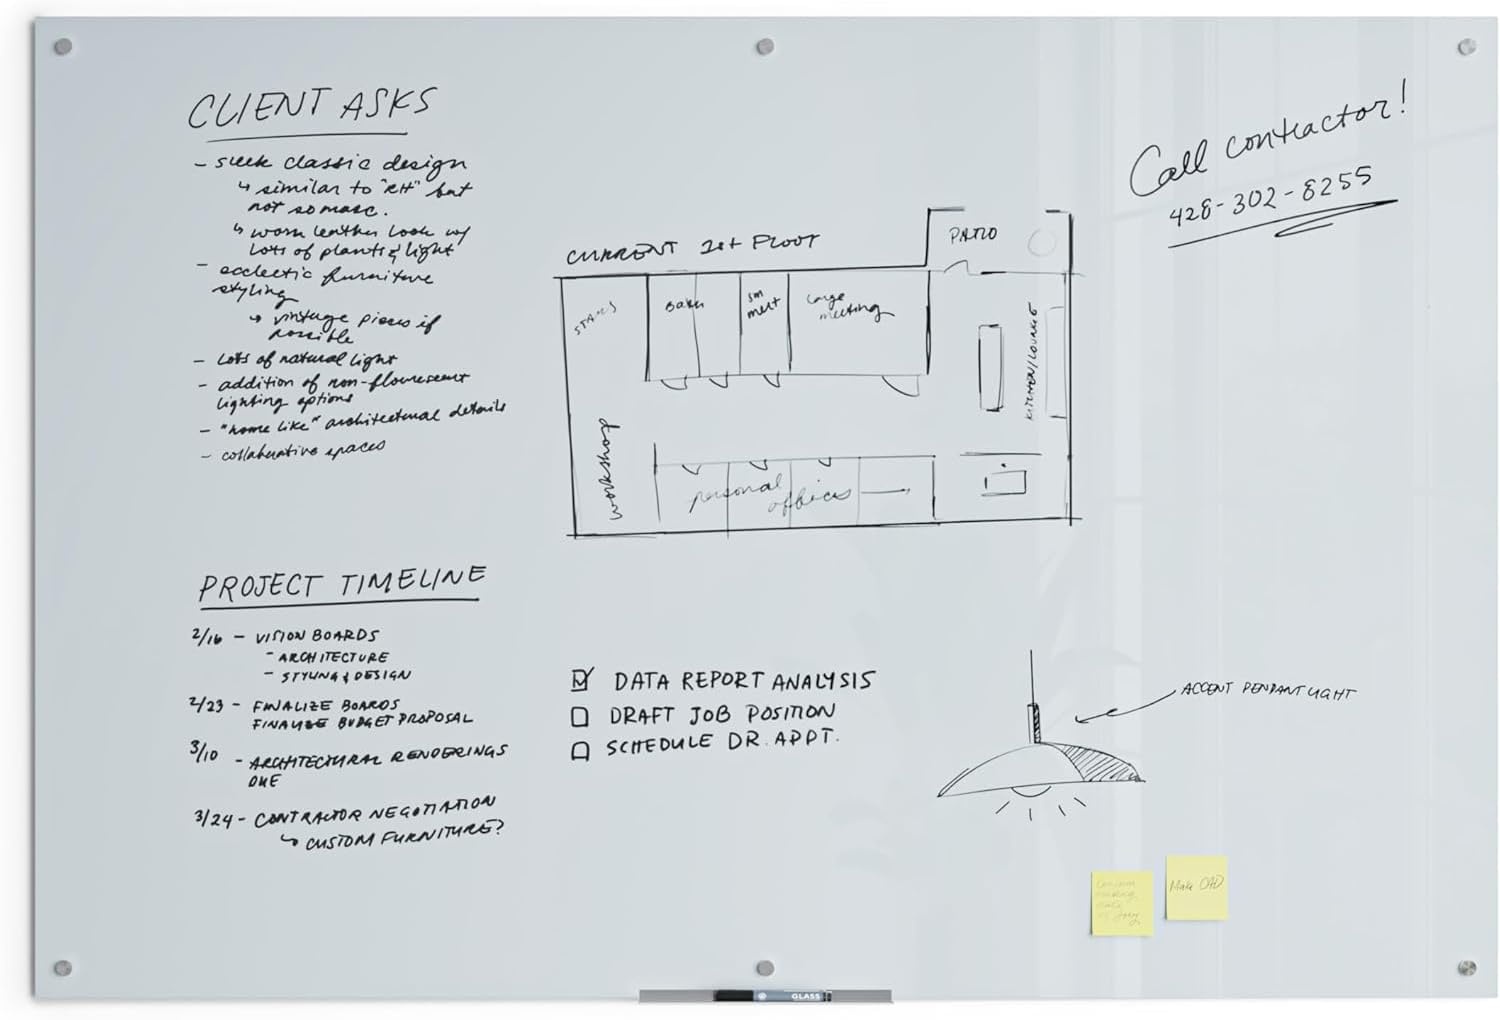 CLIENT ASKS
- sleek classic design
↳ similar to "RH" but
not so masc.
↳ worn leather look w/
lots of plants & light
- ecclectic furniture
styling
↳ vintage pieces if
possible
- lots of natural light
- addition of non-flourescent
lighting options
- "home like" architectural details
- collaborative spaces
PROJECT TIMELINE
2/16 - VISION BOARDS
- ARCHITECTURE
- STYLING & DESIGN
2/23 - FINALIZE BOARDS
FINALIZE BUDGET PROPOSAL
3/10 - ARCHITECTURAL RENDERINGS
DUE
3/24 - CONTRACTOR NEGOTIATION
↳ CUSTOM FURNITURE?
CURRENT 1st FLOOR
PATIO
STAIRS
sm
meet
large
meeting
KITCHEN/LOUNGE
workshop
personal
offices
☑ DATA REPORT ANALYSIS
☐ DRAFT JOB POSITION
☐ SCHEDULE DR. APPT.
Call contractor!
428-302-8255
ACCENT PENDANT LIGHT
Make CAD
GLASS